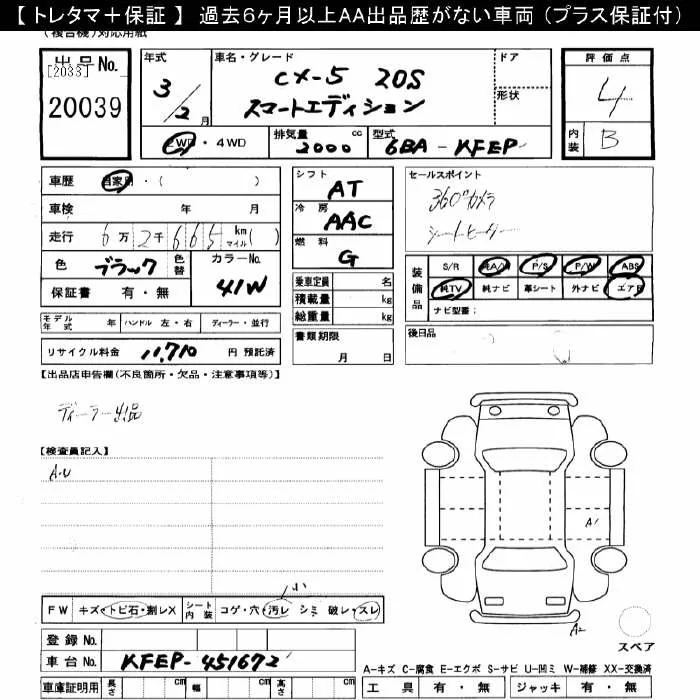 【 トレタマ＋保証 】 過去6ヶ月以上AA出品歴がない車両 (プラス保証付)
(複合機)対応用紙
出品No. [2033] 20039
年式 3/2月
車名・グレード CX-5 20S スマートエディション
ドア 形状
2WD・4WD 排気量 2000cc 型式 6BA-KFEP
評価点 4
内装 B
車歴 自家用・( )
車検 年 月
走行 6万2千665 km マイル( )
色 ブラック 色替 カラーNo. 41W
保証書 有・無
シフト AT
冷房 AAC
燃料 G
乗車定員 名
積載量 kg
総重量 kg
セールスポイント
360°カメラ
シートヒーター
装備品 S/R 純A/W P/S P/W ABS
純TV 純ナビ 革シート 外ナビ エアB
ナビ型番:
モデル年式 年 ハンドル 左・右 ディーラー・並行
リサイクル料金 11,710 円 預託済
書類期限 月 日
後日品
【出品店申告欄(不良箇所・欠品・注意事項等)】
ディーラー出品
【検査員記入】
A.U
A1
小
FW キズ・トビ石・割レX シート内装 コゲ・穴・汚レ シミ 破レ・スレ
A2
登録No.
スペア
車台No. KFEP-451672
A-キズ C-腐食 E-エクボ S-サビ U-凹ミ W-補修 XX-交換済
車庫証明用 長さ cm 幅 cm 高さ cm
工具 有・無 ジャッキ 有・無